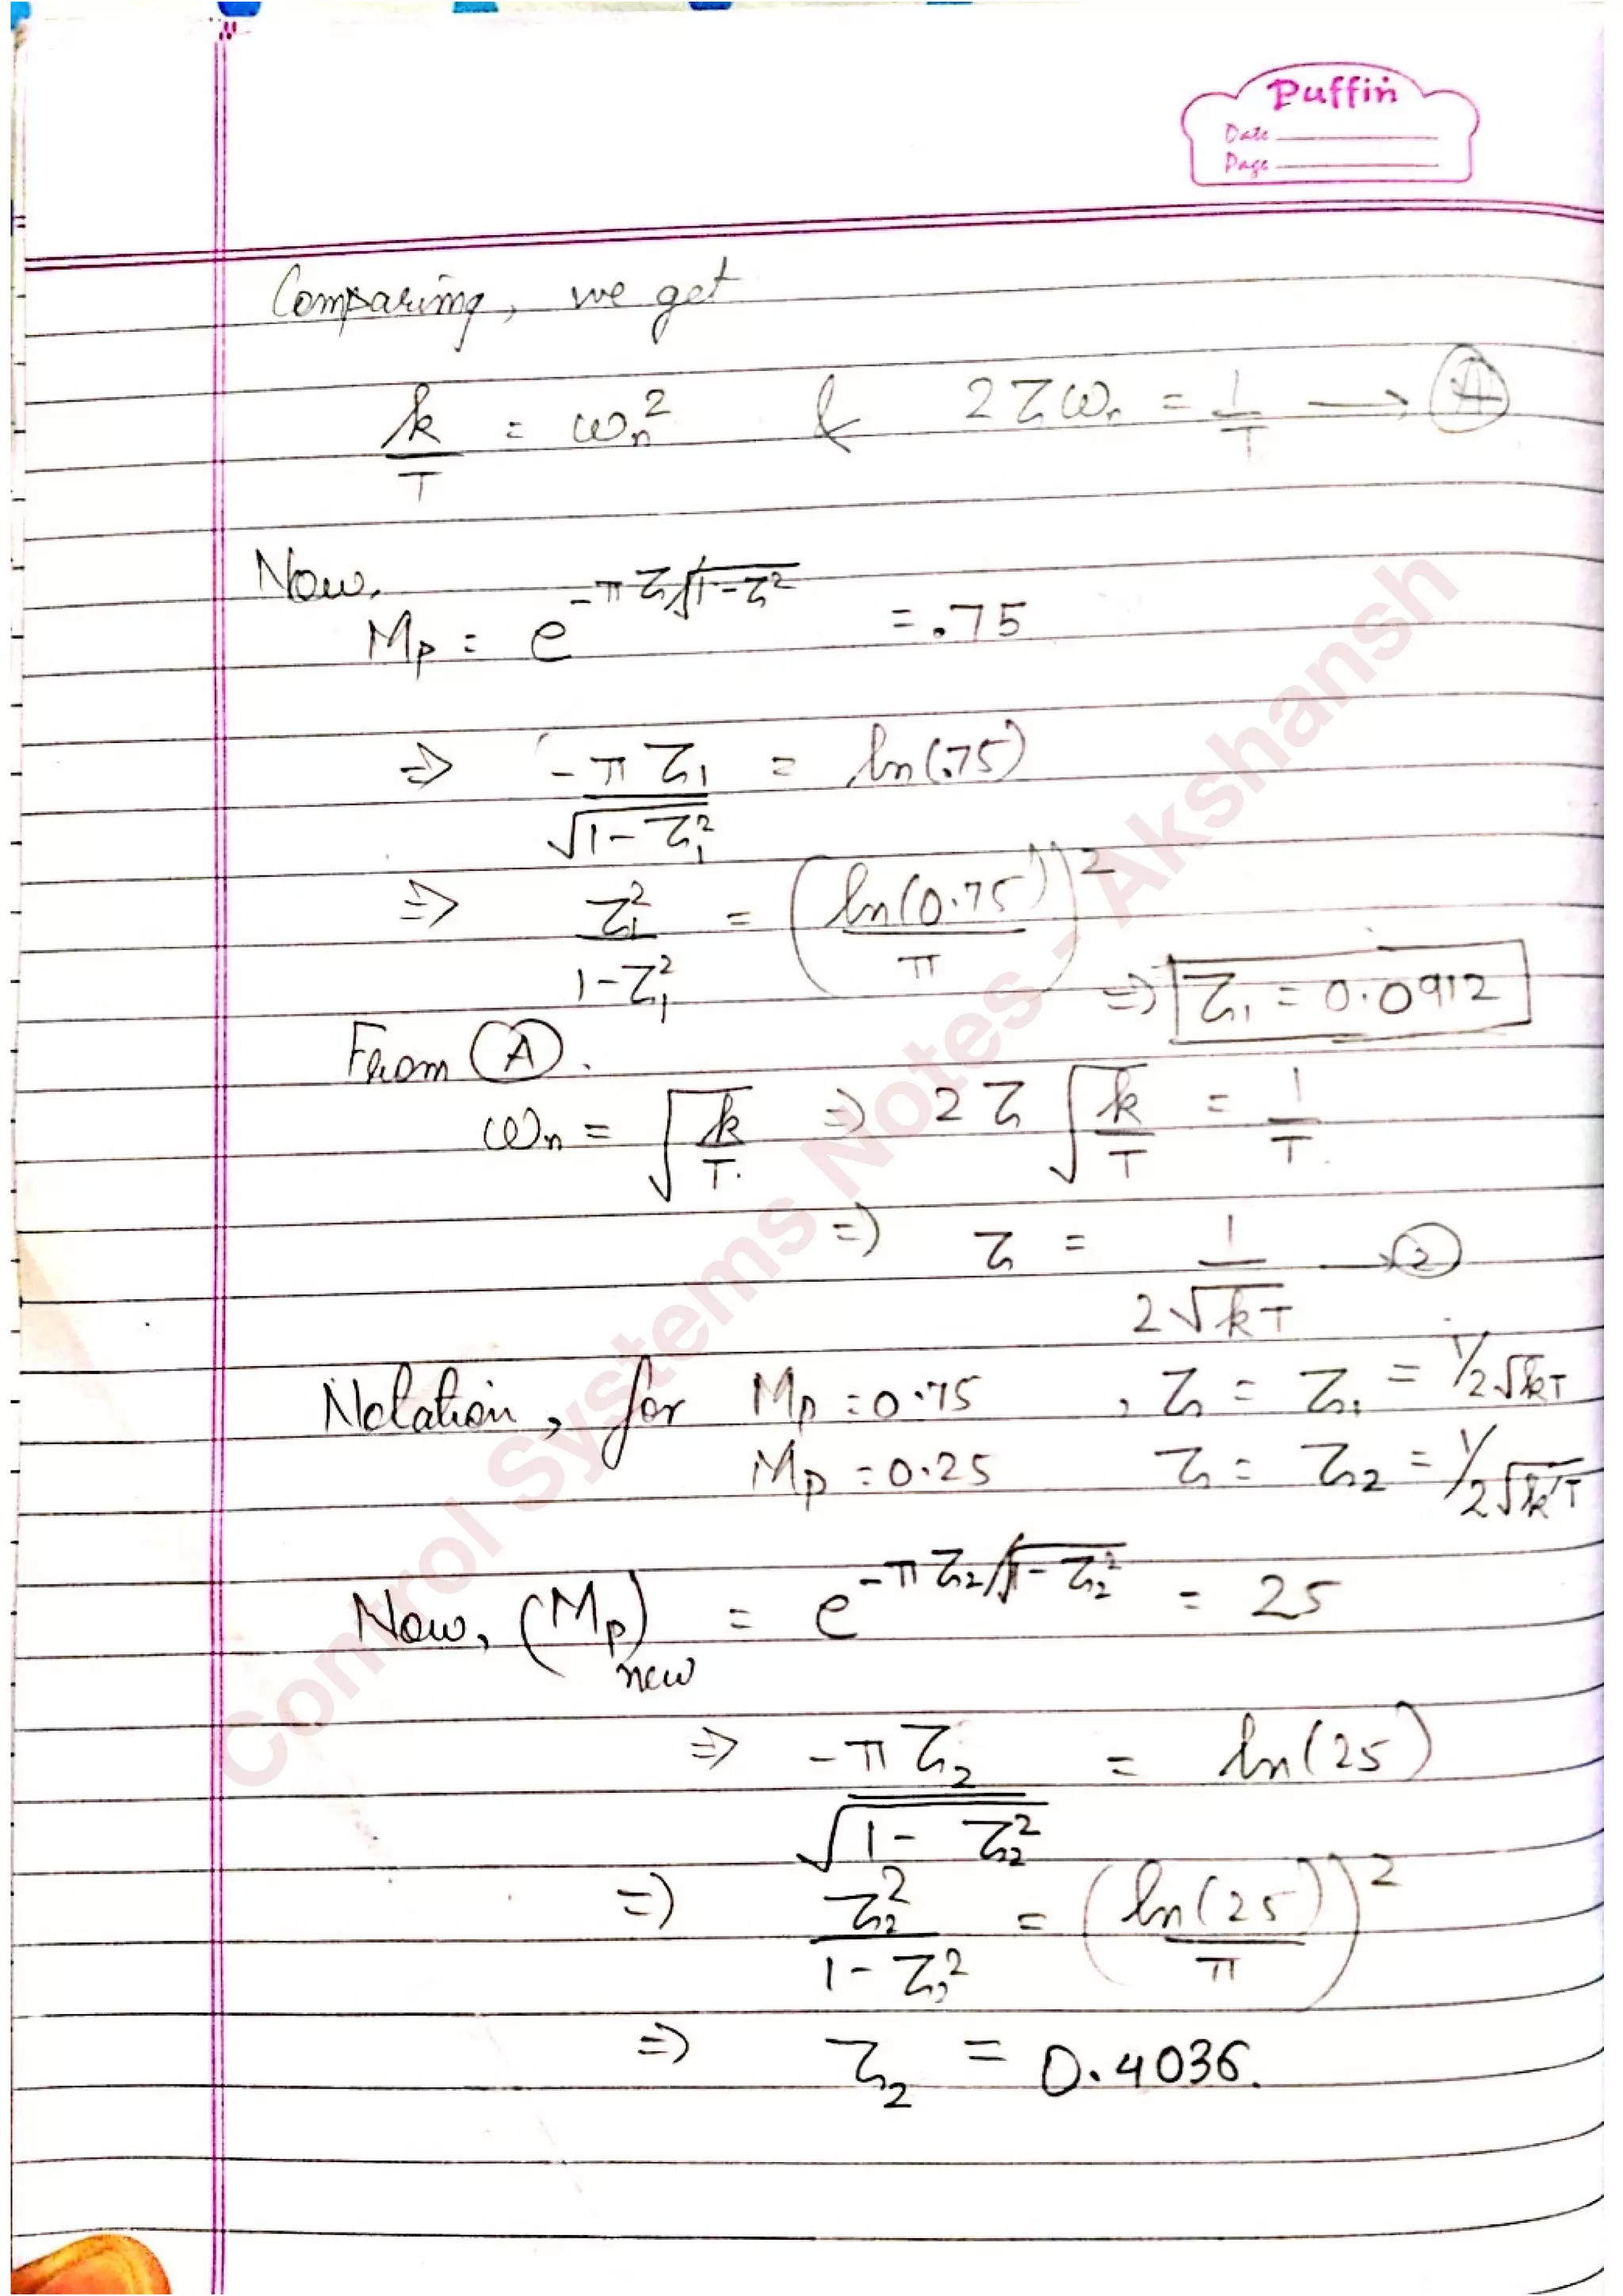 Puffin
Date
Page
Comparing, we get
k/T = ωn² & 2ζωn = 1/T → (A)
Now,
Mp = e^(-πζ/√(1-ζ²)) = .75
⇒ -πζ1/√(1-ζ1²) = ln(.75)
⇒ ζ1²/(1-ζ1²) = (ln(0.75)/π)²
⇒ ζ1 = 0.0912
From (A).
ωn = √(k/T) ⇒ 2ζ√(k/T) = 1/T
⇒ ζ = 1/(2√(kT)) → (2)
Notation, for Mp = 0.75 , ζ = ζ1 = 1/2√(kT)
Mp = 0.25 ζ = ζ2 = 1/2√(k'T)
Now, (Mp)new = e^(-πζ2/√(1-ζ2²)) = 25
⇒ -πζ2/√(1-ζ2²) = ln(25)
⇒ ζ2²/(1-ζ2²) = (ln(25)/π)²
⇒ ζ2 = 0.4036.
Control Systems Notes - Akshansh